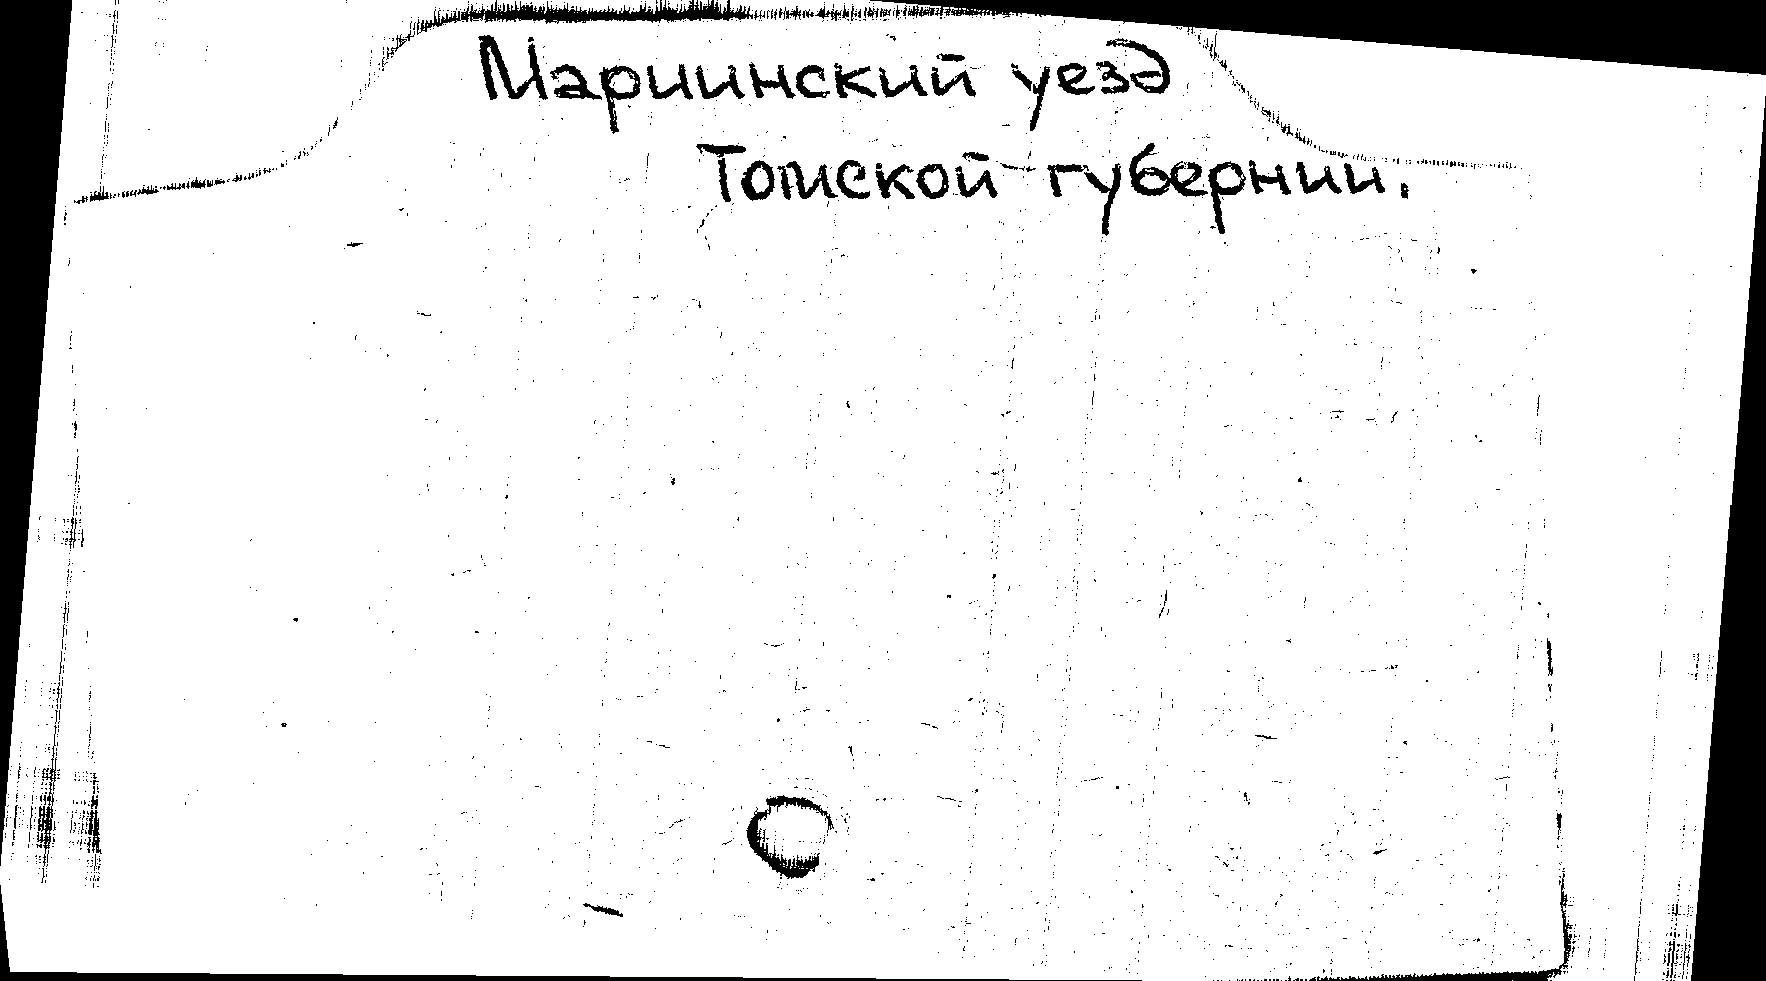 Мариинский уезд
Томской губернии.